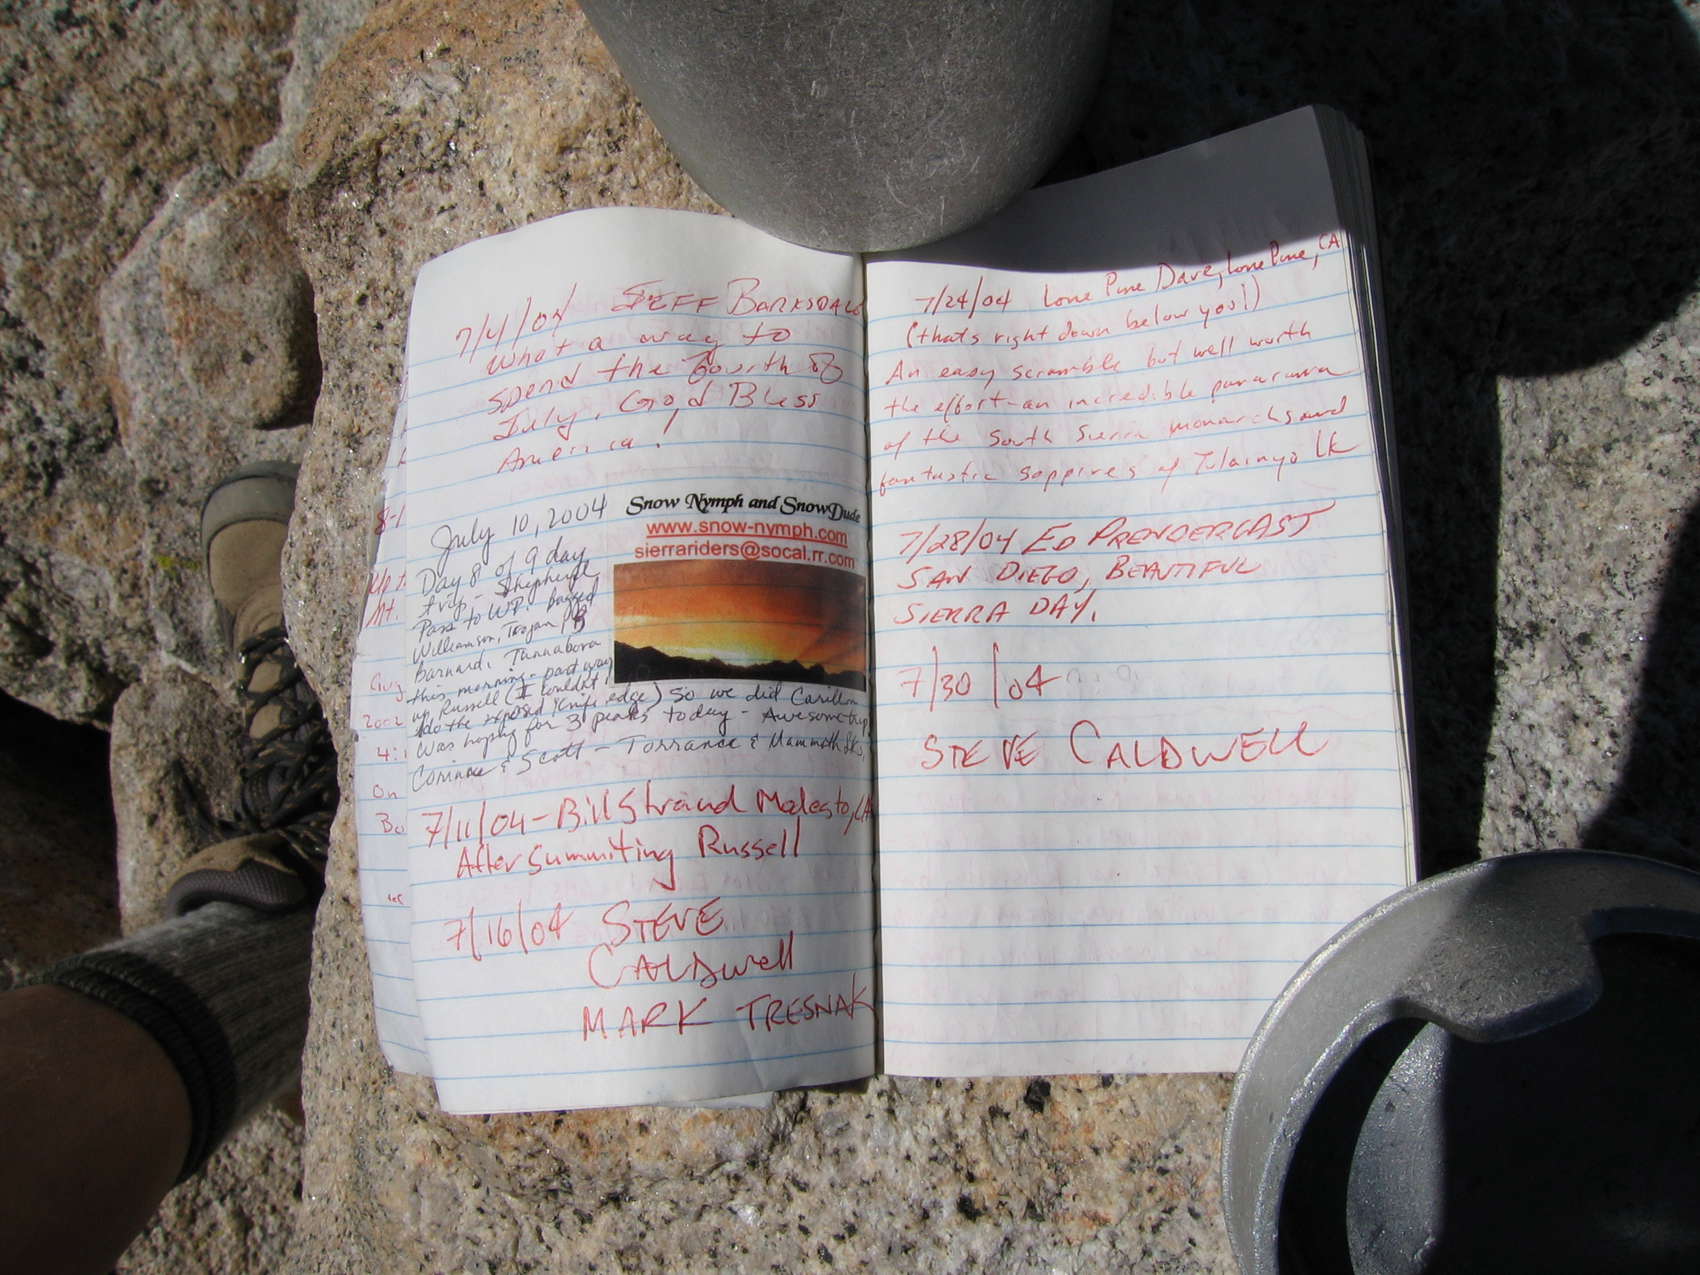 7/4/04 JEFF BARKSDALE
What a way to
spend the Fourth of
July. God Bless
America!
July 10, 2004
Snow Nymph and SnowDude
www.snow-nymph.com
sierrariders@socal.rr.com
Day 8 of 9 day
trip - Shepherd
Pass to WP. bagged
Williamson, Trojan,
Barnard, Tunnabora
this morning - part way
up Russell (I couldn't
do the exposed knife edge) so we did Carillon
Was hoping for 3 peaks today - Awesome trip
Corinne & Scott - Torrance & Mammoth Lks,
7/11/04 - Bill Strand Modesto, CA
After summiting Russell
7/16/04 STEVE
CALDWELL
MARK TRESNAK
7/24/04 Lone Pine Dave, Lone Pine, CA
(thats right down below you!)
An easy scramble but well worth
the effort - an incredible panarama
of the South Sierra monarchs and
fantastic sappires of Tulainyo LK
7/28/04 ED PRENDERGAST
SAN DIEGO, BEAUTIFUL
SIERRA DAY.
7/30/04
STEVE CALDWELL
8-1
Mt.
Aug
2002
4:1
On
Bo